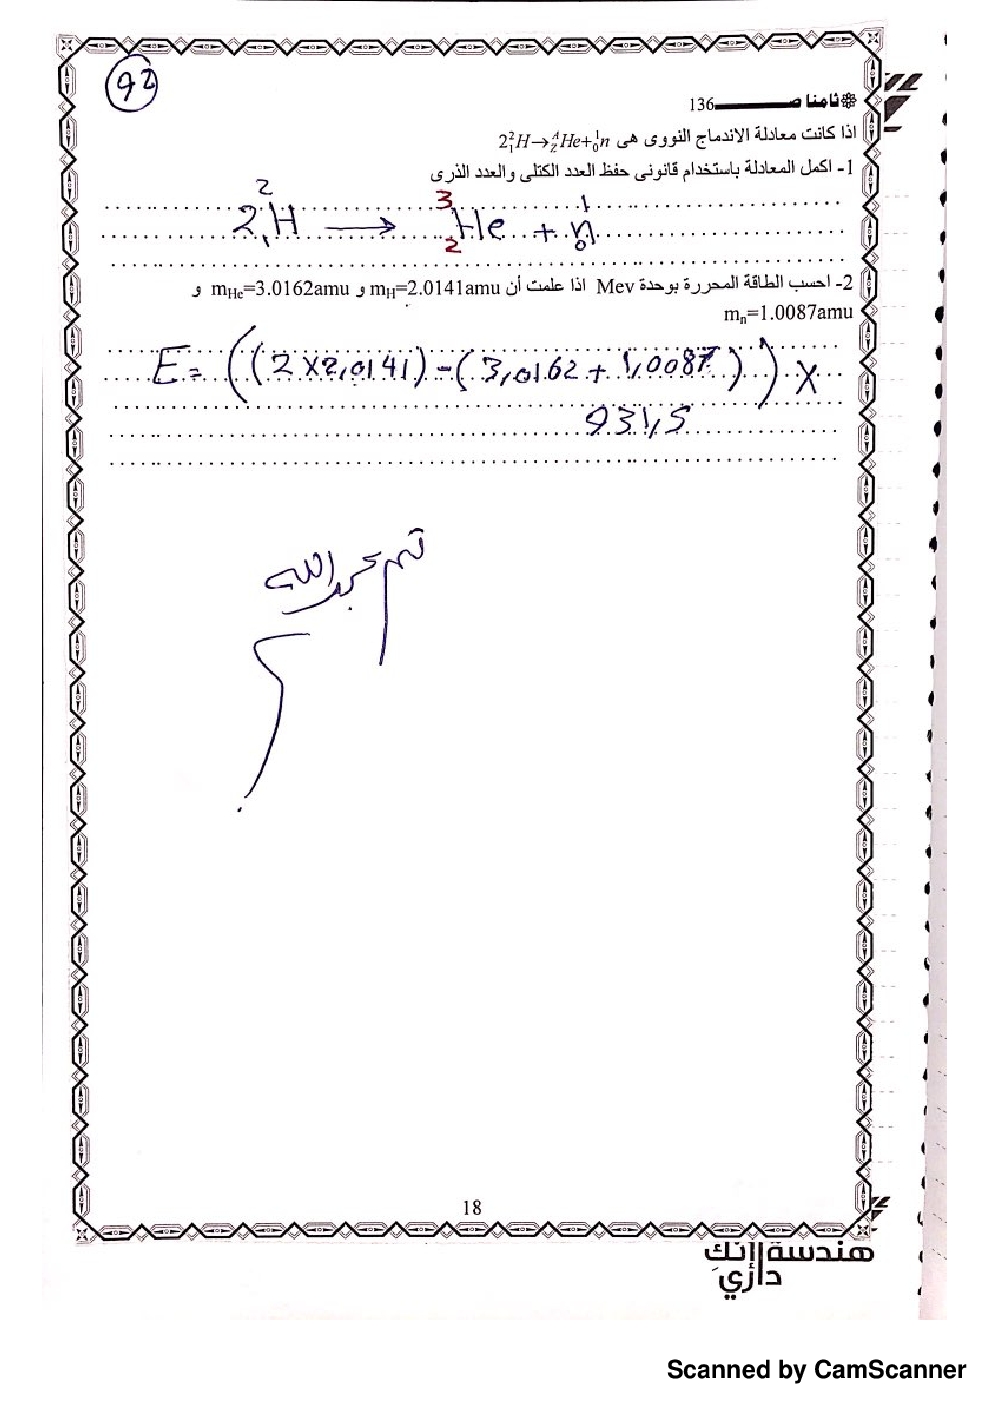 92
❋ثامنا صـــــــــــ136
اذا كانت معادلة الاندماج النووى هى 2²₁H→ᴬ𝘡He+¹₀n
1- اكمل المعادلة باستخدام قانونى حفظ العدد الكتلى والعدد الذرى
2²₁H ⟶ ³₂He + ¹₀n
2- احسب الطاقة المحررة بوحدة Mev اذا علمت أن mH=2.0141amu و mHe=3.0162amu و
mn=1.0087amu
E = ((2 × 2,0141) - (3,0162 + 1,0087)) ×
931,5
تم بحمد الله
18
هندسة إنك
داري
Scanned by CamScanner